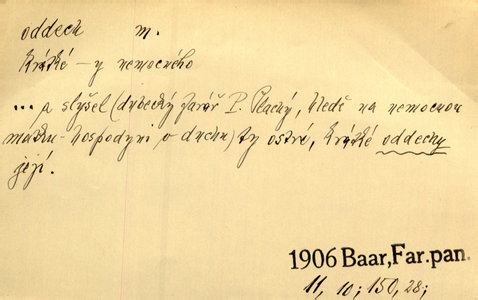 oddech m.
krátké –y nemocného
... a slyšel (dubecký farář P. Plachý, hledě na nemocnou
matku - hospodyni o duchu) ty ostré, krátké oddechy
její.
1906 Baar, Far. pan.
11, 10; 150, 28;